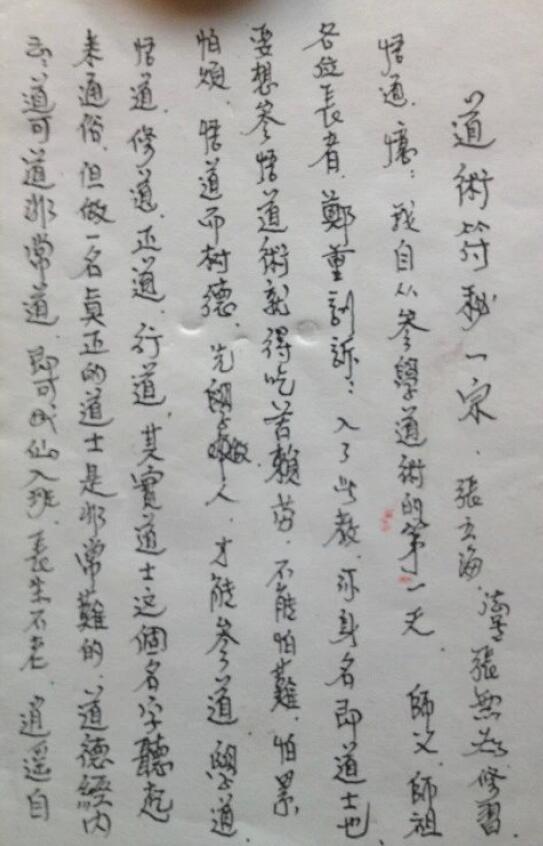 道術符秘一宗 張玄海 法号 張無为修習
悟道 情：我自从參學道術的第一天 師父 師祖
各位長者 鄭重訓訴：入了此教 称身名即道士也
要想參悟道術就得吃苦賴劳 不能怕難 怕累
怕煩 悟道而树德 先學做人 才能参道 學道
悟道 修道 正道 行道 其實道士这個名字聽起
来通俗 但做一名真正的道士是非常難的 道德經内
云：道可道非常道 即可成仙入班 長生不老 逍遥自